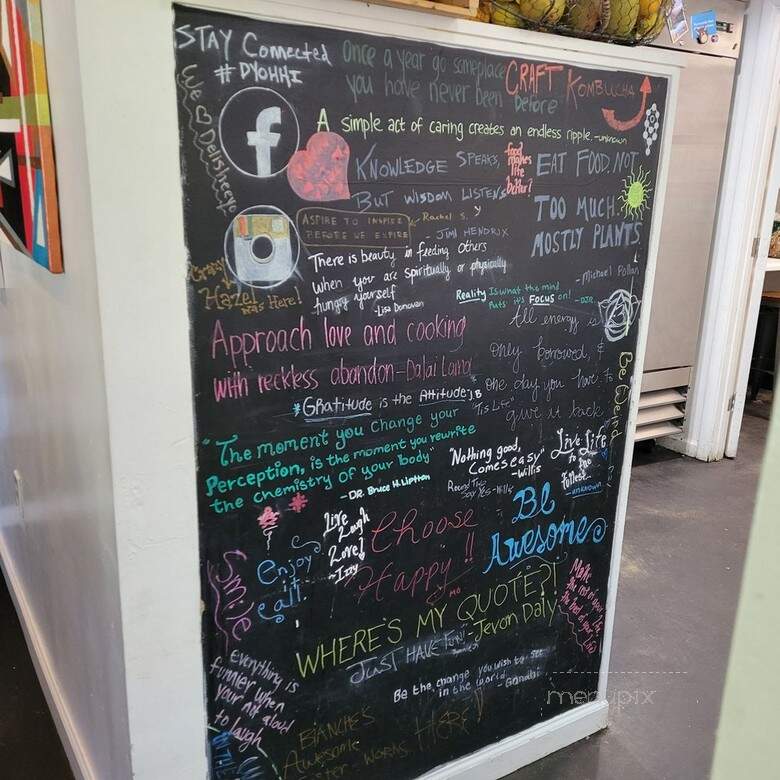 STAY Connected
# DYOHHI
Once a year go someplace
you have never been before
CRAFT KOMBUCHA
We Delisheeyo
A simple act of caring creates an endless ripple. -unknown
KNOWLEDGE SPEAKS,
BUT WISDOM LISTENS
- JIMI HENDRIX
food
makes
life
better!
EAT FOOD, NOT
TOO MUCH.
MOSTLY PLANTS.
- Michael Pollan
ASPIRE TO INSPIRE
BEFORE WE EXPIRE
Rachel S.
There is beauty in feeding others
when you are spiritually or physically
hungry yourself
-Lisa Donovan
Crazy
Hazel
was Here!
Reality Is what the mind
Puts it's FOCUS on!
Approach love and cooking
with reckless abandon-Dalai Lama
All energy is
only borrowed, &
one day you have to
give it back
*Gratitude is the Attitude J.B
"Tis Life"
Be Weird
"The moment you change your
Perception, is the moment you rewrite
the chemistry of your body"
-DR. Bruce H. Lipton
"Nothing good,
Comes easy"
-Willis
Round Two
Say Yes -Willis
Live Life
to the
fullest
-unknown
Live
Laugh
Love!
~Izzy
Choose
Happy!!
Mo
Be
Awesome
Enjoy
it
all!
Smile
WHERE'S MY QUOTE?!
-Jevon Daly
JUST HAVE FUN!
Make
the rest of your life
the best of your life
Be the change you wish to see
in the world - Gandhi
everything is
funnier when
your not aloud
to laugh
BIANCHE'S
Awesome
WORKS HERE!
menupix